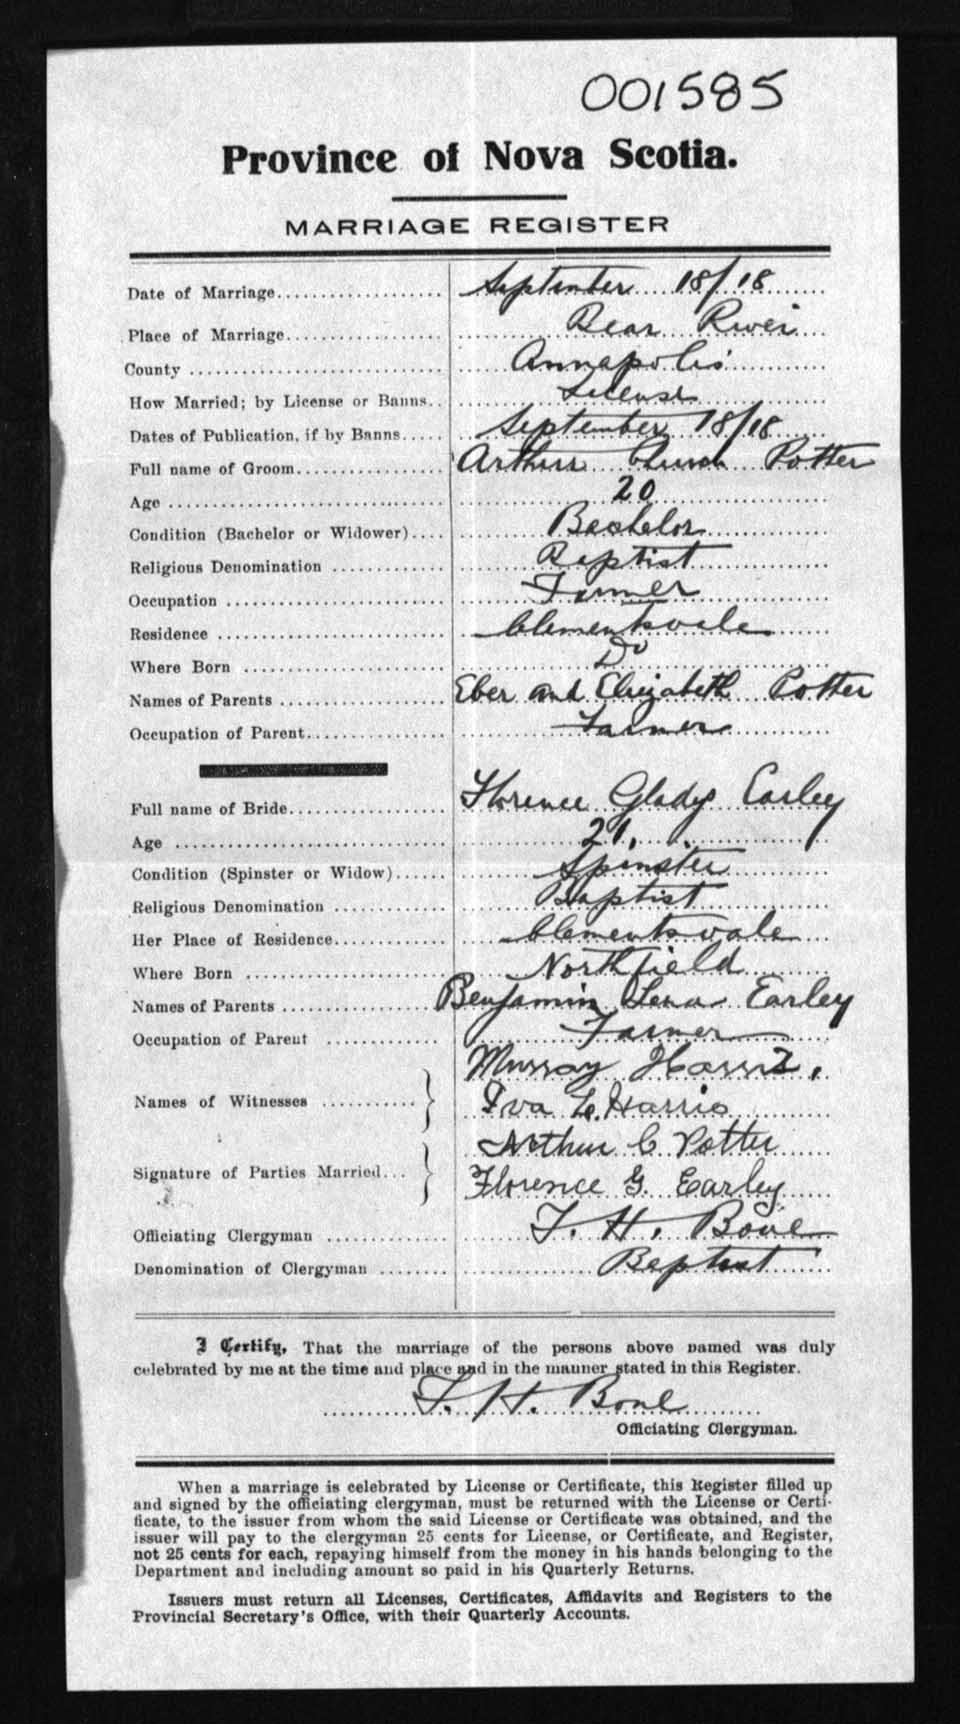 001585
Province of Nova Scotia.
MARRIAGE REGISTER
Date of Marriage.................... September 18/18
Place of Marriage.................... Bear River
County .................... Annapolis
How Married; by License or Banns.. License
Dates of Publication, if by Banns..... September 18/18
Full name of Groom.................... Arthur Church Potter
Age .................... 20
Condition (Bachelor or Widower).... Bachelor
Religious Denomination .............. Baptist
Occupation .................... Farmer
Residence .................... Clementsvale
Where Born .................... Do
Names of Parents .................... Eber and Elizabeth Potter
Occupation of Parent.................... Farmer
Full name of Bride.................... Florence Gladys Earley
Age .................... 21.
Condition (Spinster or Widow)...... Spinster
Religious Denomination .............. Baptist
Her Place of Residence.............. Clementsvale
Where Born .................... Northfield
Names of Parents .................... Benjamin Lena Earley
Occupation of Parent .............. Farmer
Murray Harris,
Names of Witnesses ............ } Iva L. Harris
Arthur C Potter
Signature of Parties Married... } Florence G. Earley
Officiating Clergyman .............. T. H. Bone
Denomination of Clergyman ........ Baptist
I Certify, That the marriage of the persons above named was duly
celebrated by me at the time and place and in the manner stated in this Register.
T. H. Bone
Officiating Clergyman.
When a marriage is celebrated by License or Certificate, this Register filled up
and signed by the officiating clergyman, must be returned with the License or Certi-
ficate, to the issuer from whom the said License or Certificate was obtained, and the
issuer will pay to the clergyman 25 cents for License, or Certificate, and Register,
not 25 cents for each, repaying himself from the money in his hands belonging to the
Department and including amount so paid in his Quarterly Returns.
Issuers must return all Licenses, Certificates, Affidavits and Registers to the
Provincial Secretary's Office, with their Quarterly Accounts.